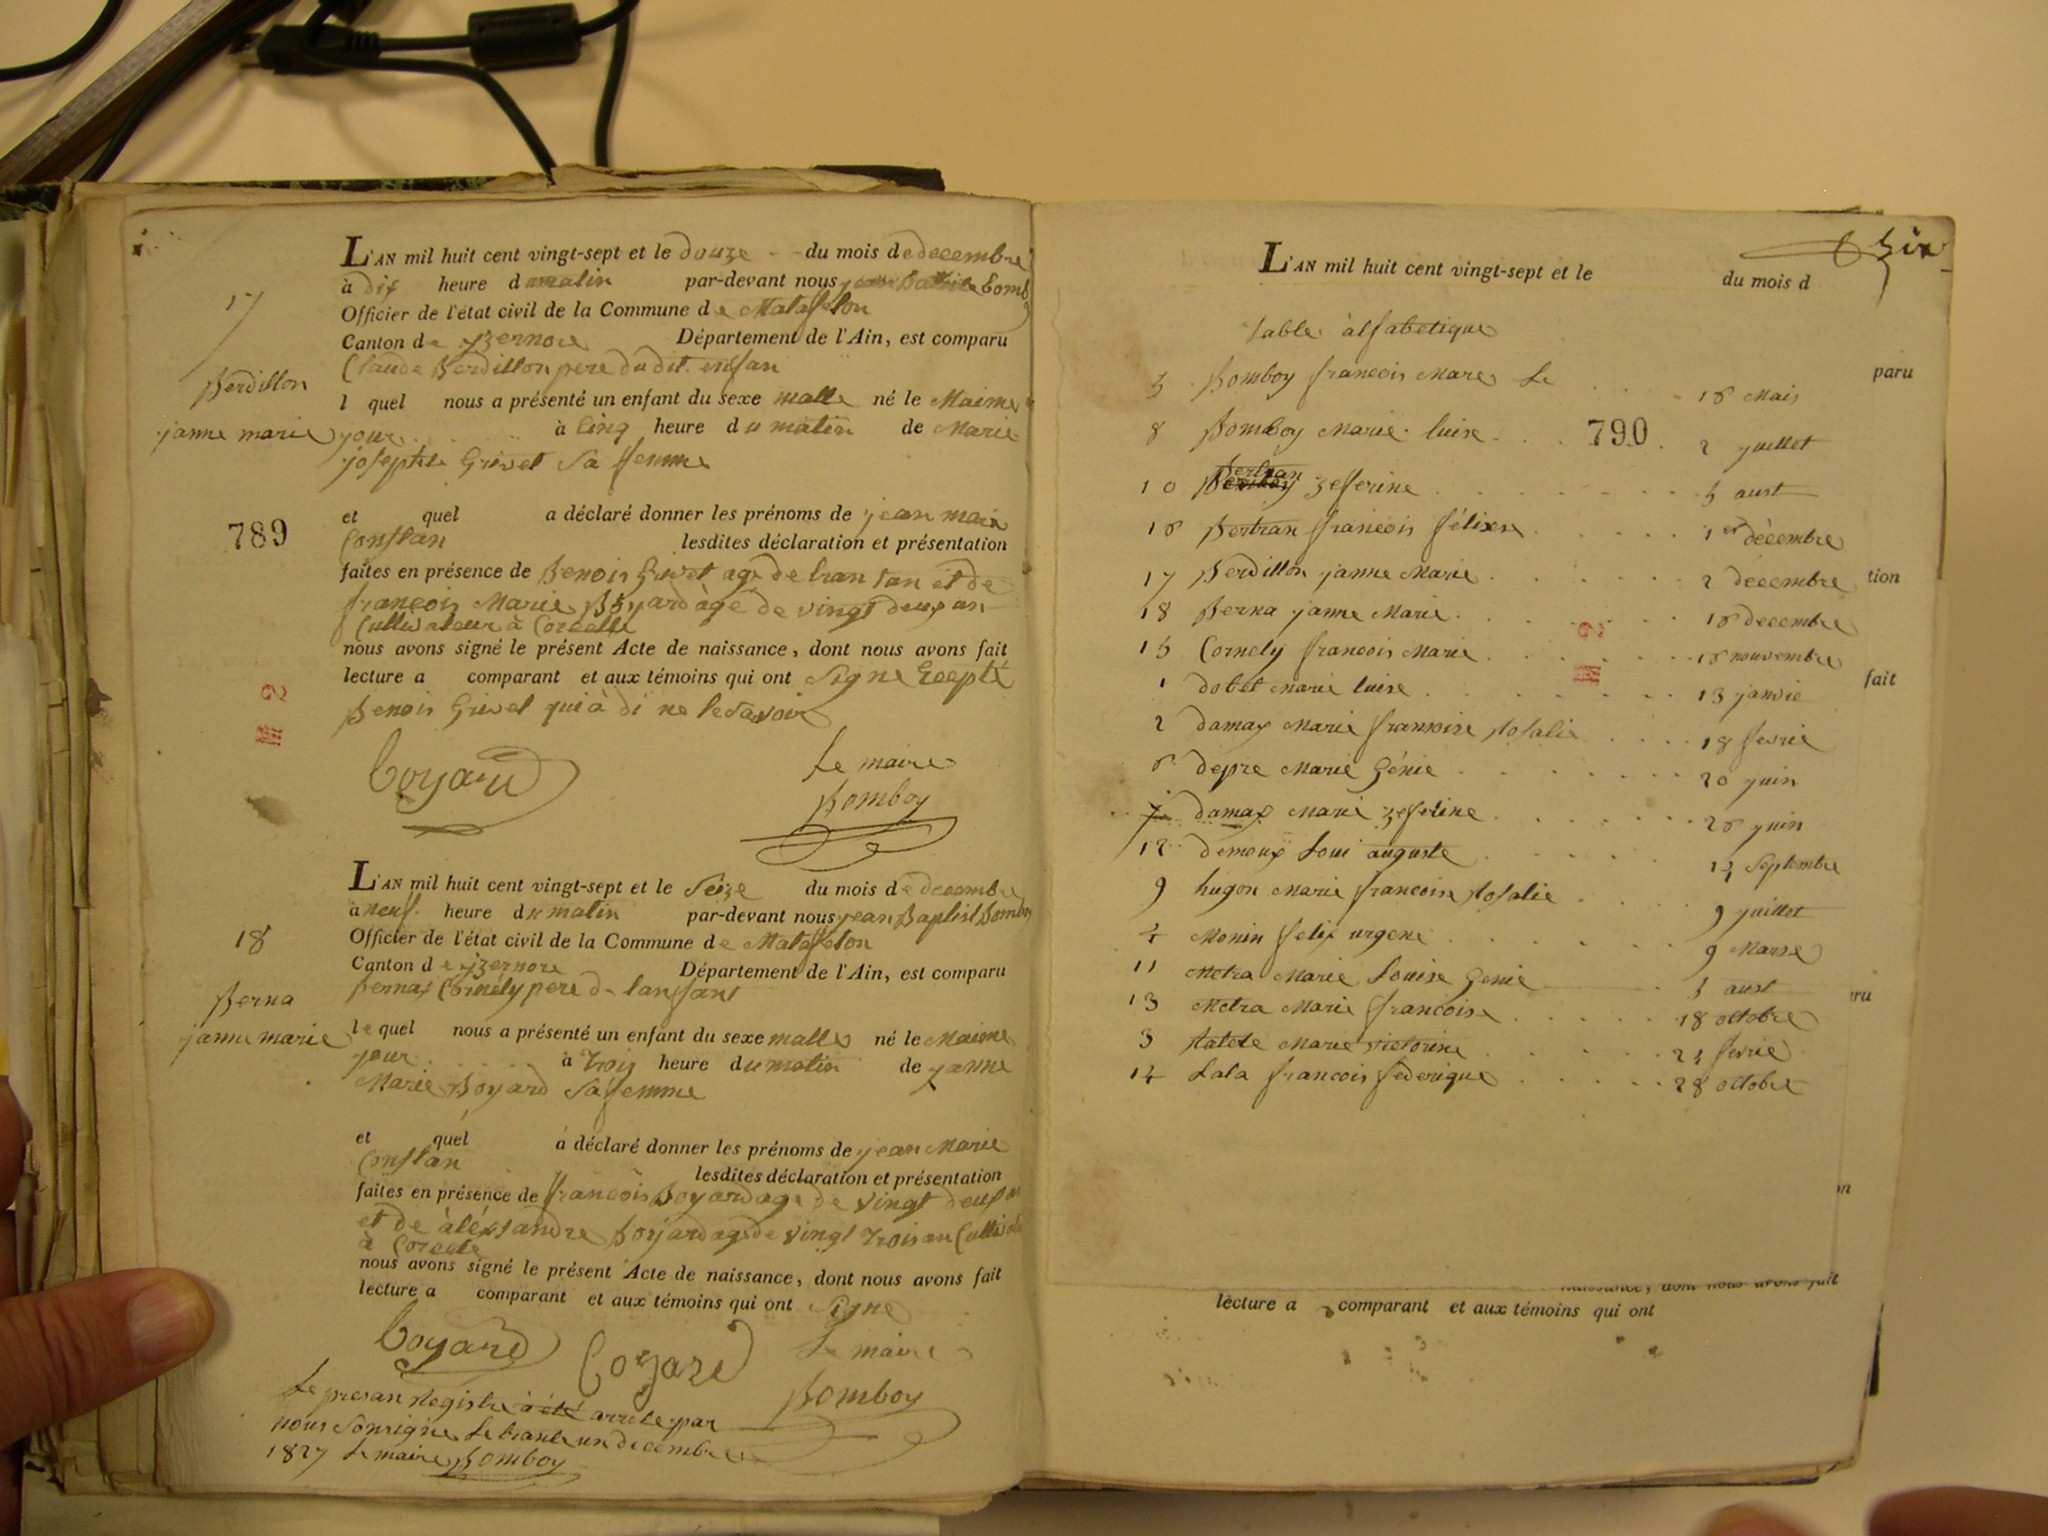 L'AN mil huit cent vingt-sept et le douze du mois de decembre
à dix heure du matin par-devant nous jean Batiste bomboy
Officier de l'état civil de la Commune de Matafelon
17
Canton de yzernore Département de l'Ain, est comparu
Claude Berdillon pere dudit enfan
Berdillon
l quel nous a présenté un enfant du sexe malle né le Maime
janne marie jour à Cinq heure du matin de Marie
josephte Grivet Sa femme
789
et quel a déclaré donner les prénoms de jean marie
Constan lesdites déclaration et présentation
faites en présence de Benois Grivet age de tran tan et de
francois Marie Boyard àgé de vingt deux an
Cultivateur à Corcelle
nous avons signé le présent Acte de naissance, dont nous avons fait
lecture a comparant et aux témoins qui ont signe Excepté
Benois Grivet qui à di ne le savoir
III 2
boyard Le maire
Bomboy
L'AN mil huit cent vingt-sept et le Seize du mois de decembre
à neuf heure du matin par-devant nous jean Baptist Bomboy
18
Officier de l'état civil de la Commune de Matafelon
Canton de yzernore Département de l'Ain, est comparu
Cornely pere de lanfant
Berna
janne marie
le quel nous a présenté un enfant du sexe malle né le Maime
jour à trois heure du matin de janne
Marie Boyard Sa femme
et quél á déclaré donner les prénoms de jean Marie
Constan lesdites déclaration et présentation
faites en présence de francois Boyard age de vingt deux an
et de àléxsandre Boyard age de vingt trois an
à Corcele
nous avons signé le présent Acte de naissance, dont nous avons fait
lecture a comparant et aux témoins qui ont signe
boyard boyard Le maire
Bomboy
Le presan Registre à été arrete par
nous Sousigne Le trante un decembre
1827 Le maire Bomboy
Six
L'AN mil huit cent vingt-sept et le du mois d
table àlfabetique
paru
5 Bomboy francois Mare Le 16 Mais
8 Bomboy Marie luise 790 2 juillet
10 Bertran zeferine 5 aust
16 Bertran francois félixe 1er décembre
17 Berdillon janne Marie 2 decembre
tion
18 Berna janne Marie 16 decembre
15 Cornely francois Marie 16 nouvembre
III 2
fait
1 dobet Marie luise 13 janvie
2 damax Marie francoise Rosalie 18 fevrie
6 depre Marie Génie 20 juin
7 damax Marie zeferine 26 juin
12 demoux Loui auguste 14 Septembre
9 hugon Marie francoise Rosalie 9 juillet
4 Monin felix urgene 9 Marse
11 Metra Marie Louise Genie 5 aust
ru
13 Metra Marie francoise 18 octobre
3 Ratele Marie victorine 24 fevrie
14 Lala francois federique 28 octobre
n
naissance, dont nous avons fait
lecture a comparant et aux témoins qui ont